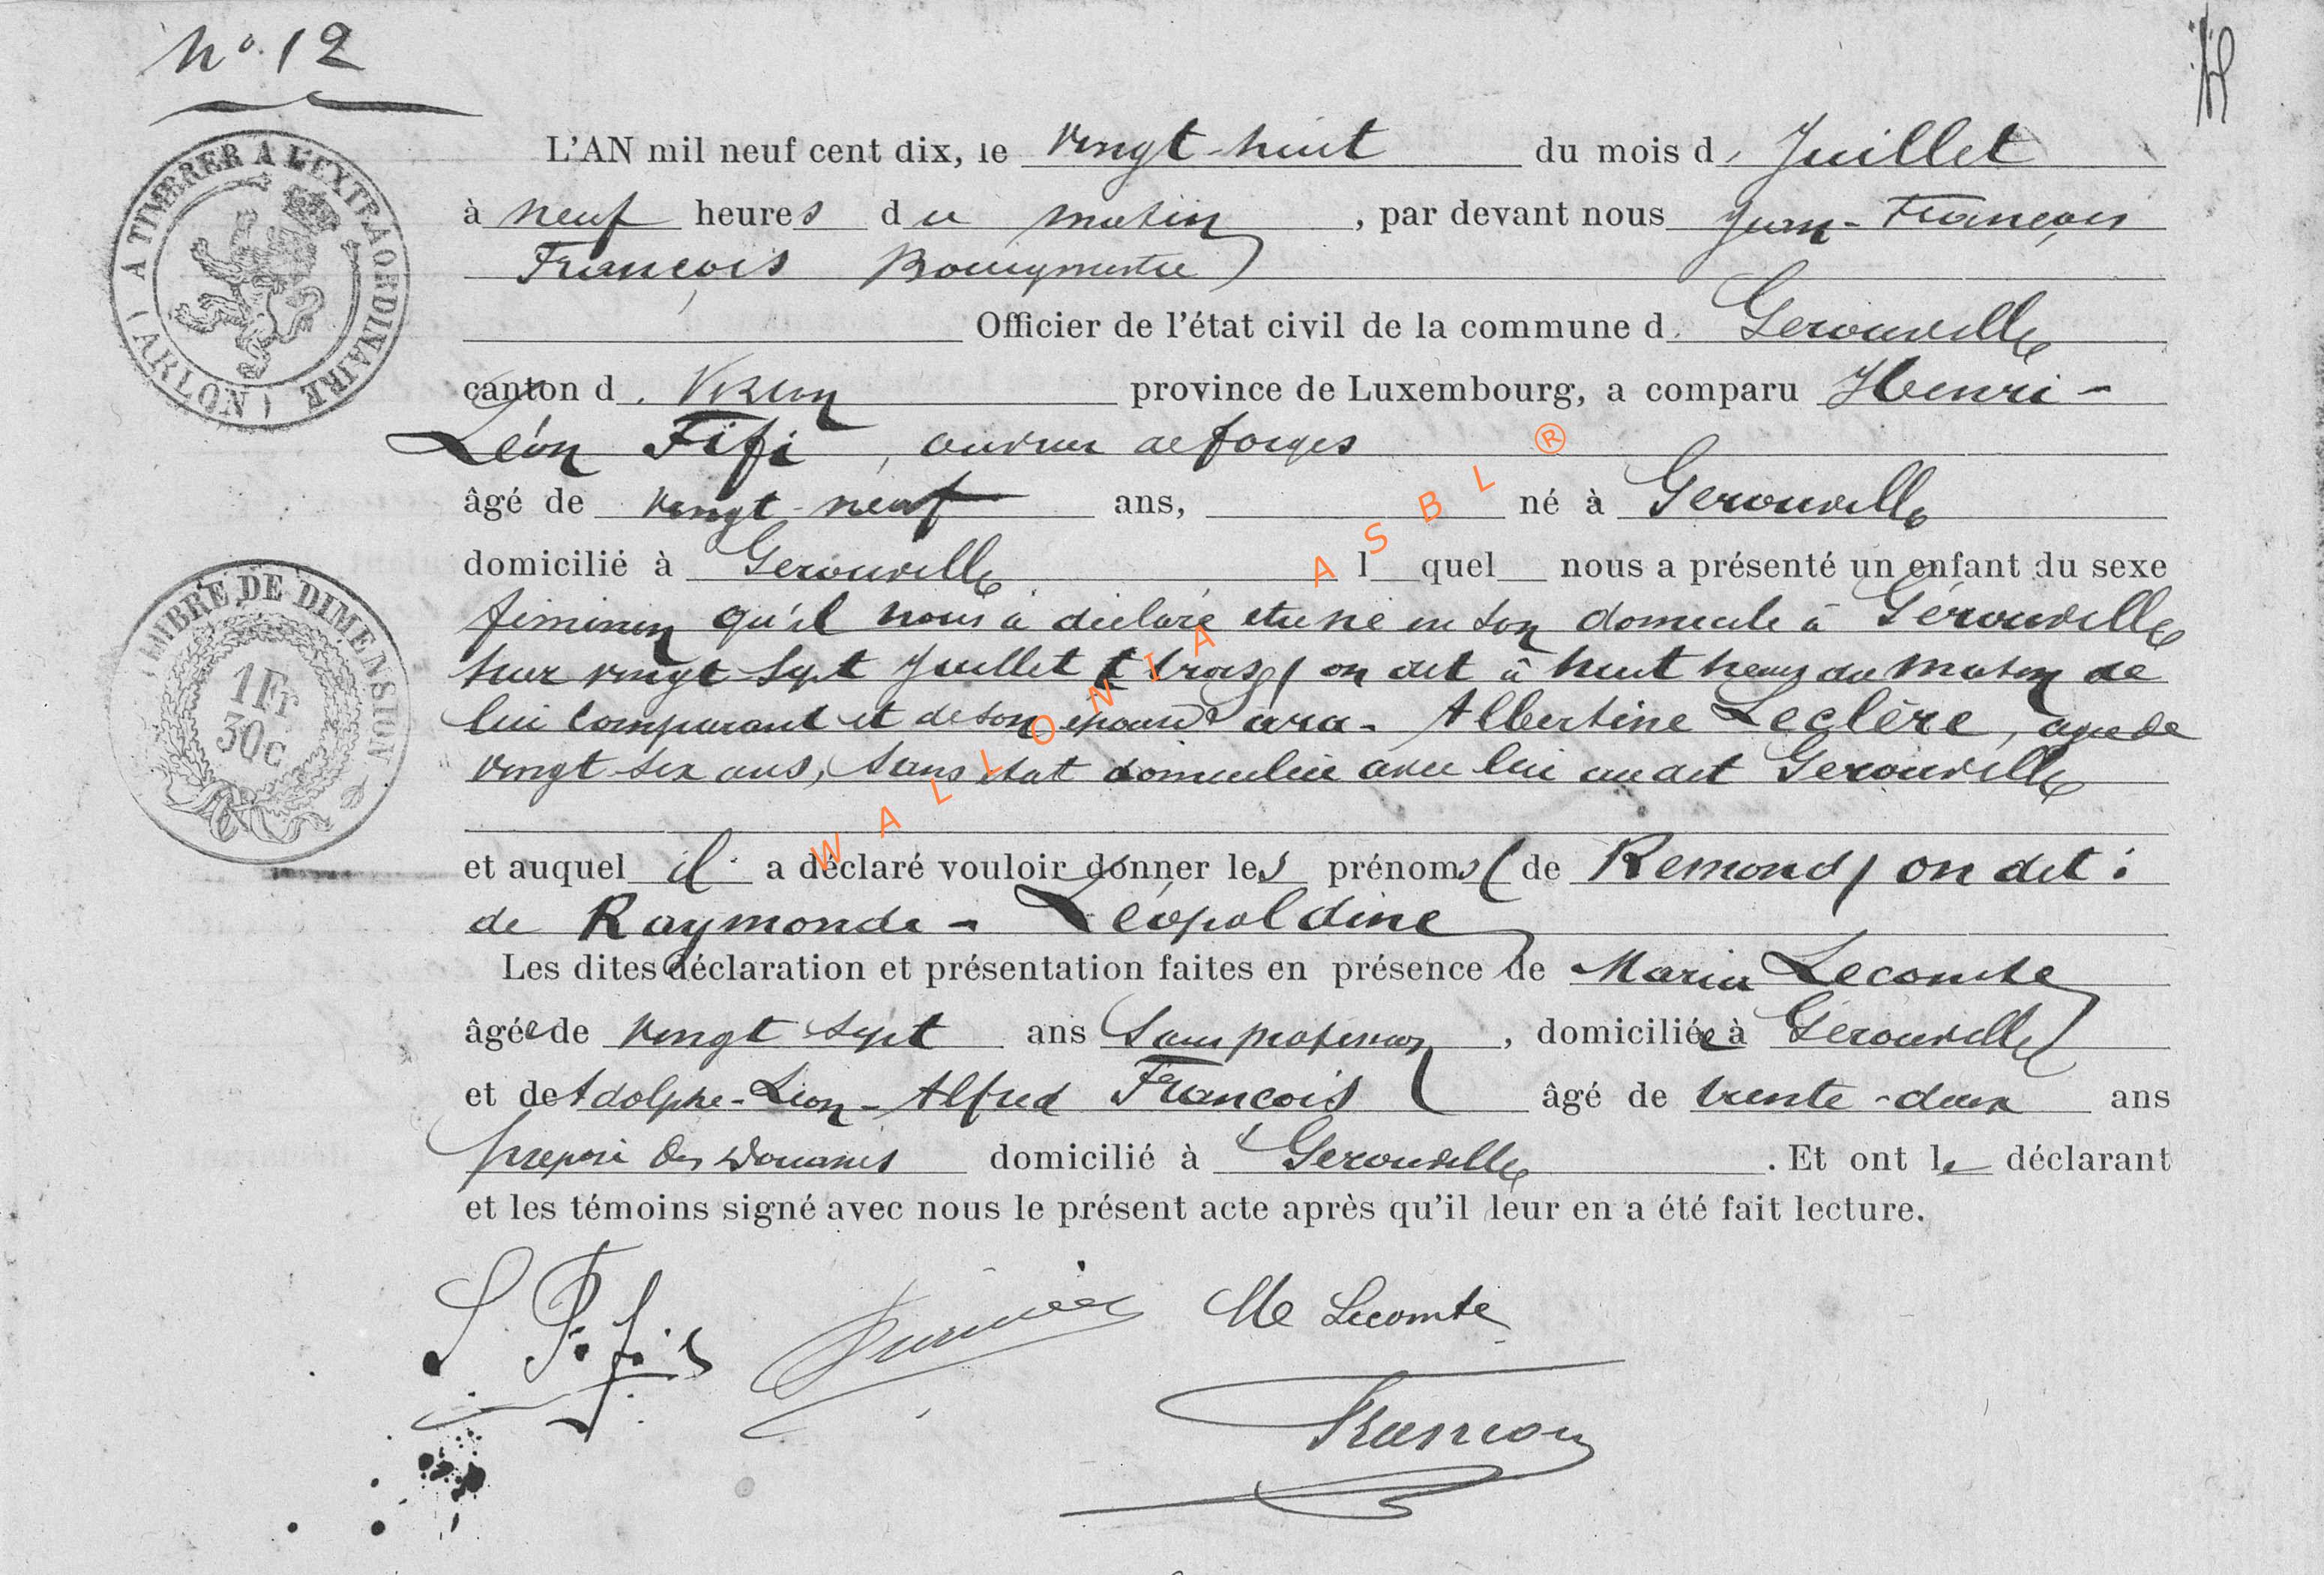 N° 12
L'AN mil neuf cent dix, le vingt-huit du mois d. Juillet
à neuf heures du matin, par devant nous Jean-François
François Bourgmestre
Officier de l'état civil de la commune d. Gerouville
canton d. Virton province de Luxembourg, a comparu Henri-
Léon Fifi, ouvrier de forges
âgé de vingt-neuf ans, né à Gerouville
domicilié à Gerouville l quel nous a présenté un enfant du sexe
féminin qu'il nous a déclaré être né en son domicile à Gérouville
hier vingt-sept Juillet (trois) on dit à huit heures du matin de
lui comparant et de son épouse Albertine Leclère, agée de
vingt-six ans, sans état domiciliée avec lui au dit Gerouville
et auquel il a déclaré vouloir donner les prénoms (de Remond) on dit :
de Raymonde - Léopoldine
Les dites déclaration et présentation faites en présence de Maria Lecomte
âgée de vingt sept ans sans profession, domiciliée à Gerouville
et de Adolphe-Léon-Alfred François âgé de trente-deux ans
préposé des Douanes domicilié à Gerouville. Et ont le déclarant
et les témoins signé avec nous le présent acte après qu'il leur en a été fait lecture.
L. Fifi
Me Lecomte
François
A TIMBRER A L'EXTRAORDINAIRE (ARLON)
TIMBRE DE DIMENSION
1Fr
30c
WALLONIA ASBL ®